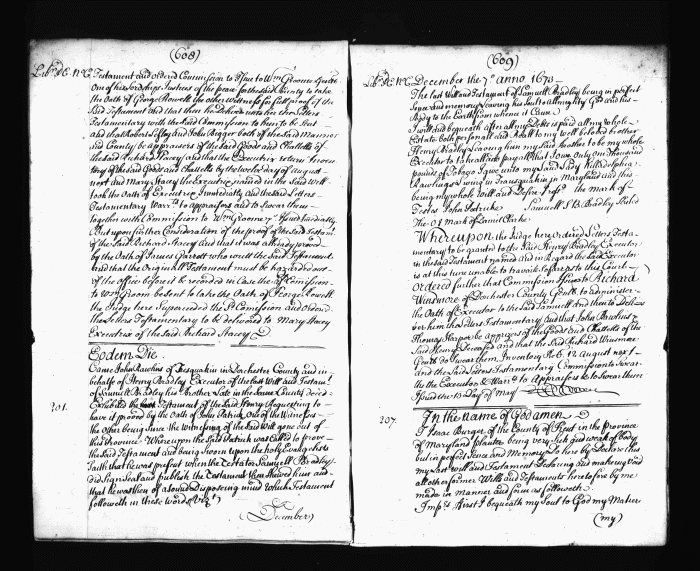 (608)
Testament and ordered Commission to Issue to Wm Groome Gent.
One of his Lordships Justices of the peace for the said County to take
the Oath of George Howell the other Witness for full proof of the
said Testament and that then he deliver unto her Letters
Testamentary with the said Commission to them to be Sent
and that Robert and John Bagger both of the Said Mannor
and County be appraisers of the said Goods and Chattells of
the said Richard Stacey and that the Executrix return Inven
tory of the said Goods and Chattells by the twelve day of August
next and Mary Stacey the Executrix named in the said Will
took the Oath of Executrix Immediatly and the said Letters
Testamentary Warr.t to Appraisors and to Swear them
together with Commission to Wm Groome Issued
But upon further Consideration of the proof of the said Testam.t
of the Said Richard Stacey and that it was already proved
by the Oath of James Garrott who writt the said Testament
and that the Originall Testament must be hazarded out
of the office before it be recorded in Case the Commission
to Wm Groom be sent to take the Oath of George Howell
the Judge here Superceded the Sd Comission and Ordered
the Letters Testamentary to be delivered to Mary Stacey
Executrix of the said Richard Stacey
Eodem Die
Came John Rawlins of Tresquakin in Dorchester County and in
behalf of Henry Bradley Executor of the last Will and Testamt
of Samuell Bradley his Brother Late in the same County Decd
Exhibited the Testament of the said Henry Requesting to
201.
have it proved by the Oath of John Patrick One of the Witnesses
the other being Since the witnessing of the Said Will gone out of
this Province Whereupon the Said Patrick was called to prove
the Said Testament and being Sworn upon the holy Evangelists
saith that he was present when the Testator Samuell Bradley
did Sign Seal and publish the Testament then Shewed him and
that he was then of a Sound disposing mind which Testament
followeth in these words Viz.t
(December)
(609)
December the 7th anno. 1673
The last Will and Testament of Samuell Bradley being in perfect
Sence and memory leaving his Soul to allmighty God and his
Body to the Earth from whence it Came
I will and bequeath after all my Debts paid all my whole
Estate both personall and Reall to my well beloved brother
Henry Bradley Leaving him my Said Brother to be my whole
Executor to take all and pay all that I owe only One thousand
pounds of Tobaco I give unto my Lady Philadelphia
Rawlings living in Transquakin in Maryland and this
being my whole Will and Desire the mark of
Testes John Patricke Samuell S B Bradley Sealed
The Mark of Daniel Clarke
Whereupon the Judge here Ordered Letters Testa
mentary to be granted to the Said Henry Bradley Executor
in the said Testament named and in Regard the said Executor
is at this time unable to travaile so farr as to this Court
Ordered further that Commission Issue to Richard
Windmore of Dorchester County Gent. to administer
the Oath of Executor to the said Samuell and then to Deli
ver him the Letters Testamentary and that John Rawlins
Thomas Harper be appraisers of the Goods and Chattells of the
Said Henry Deceased and that the Said Richard Winsmore
Gent. do Swear them Inventory Ret. 12 August next
and the Said Letters Testamentary Commission to Swear
the the Executor & Warr.t to Appraisors & to Swear them
Issued the 13 day of May
207.
In the Name of God amen
I Isaac Burger of the County of Kent in the province
of Maryland planter being very sick and weak of body
but in perfect Sence and Memory Do here by Declare this
my Last will and Testament Declaring and making void
all other former Wills and Testaments heretofore by me
made in manner and form as followeth
Imp.s first I bequeath my Soul to God my Maker
(my)